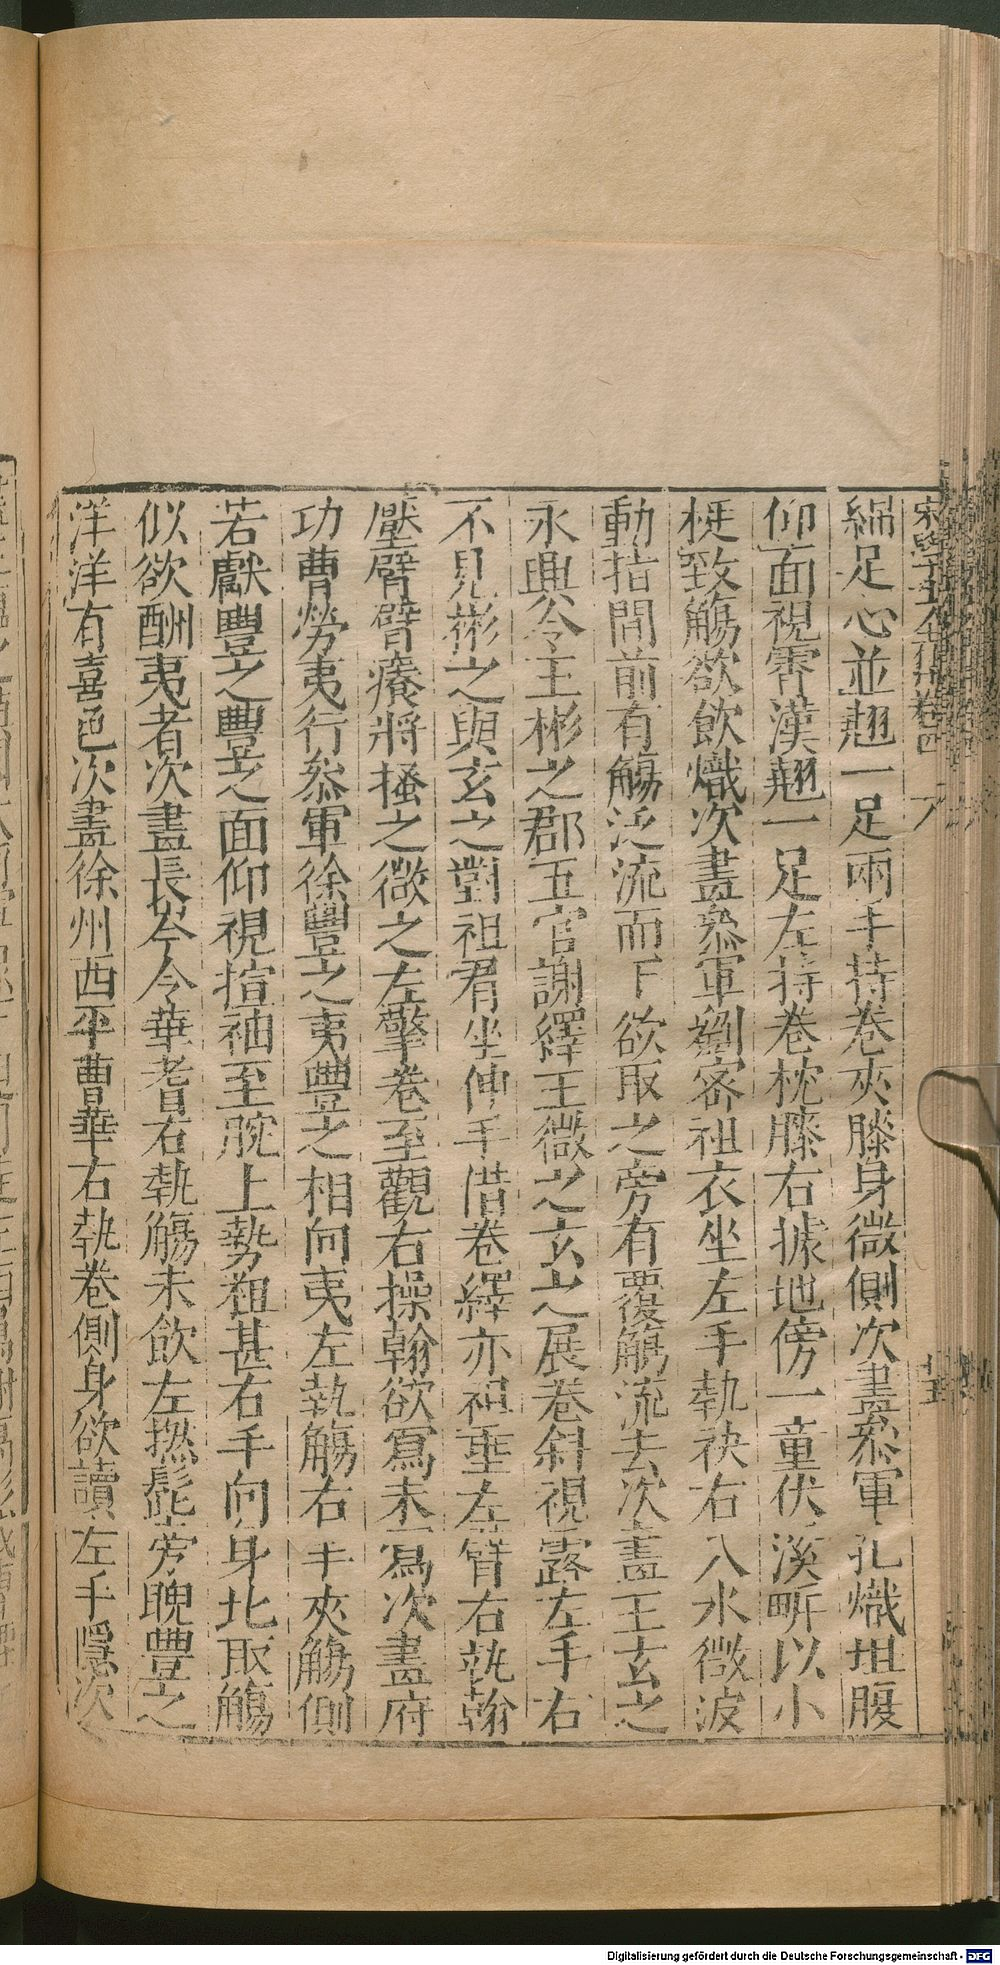 宋學士全集卷四
綿足心並翹一足兩手持卷夾膝身微側次畫叅軍孔熾坦腹
仰面視霄漢翹一足左持卷枕膝右據地傍一童伏溪㫁以小
梃致觴欲飲熾次畫叅軍劉密袒衣坐左手執袂右入水微波
動指間前有觴泛流而下欲取之旁有覆觴流去次畫王玄之
永興令王彬之郡五官謝繹王微之玄之展卷斜視露左手右
不見彬之與玄之對袒肩坐伸手借卷繹亦袒垂左臂右執翰
壓臂臂癢將搔之微之左擎卷至觀右操翰欲寫未寫次畫府
功曹勞夷行叅軍徐豐之夷豐之相向夷左執觴右手夾觴側
若獻豐之豐之面仰視揎袖至腕上勢粗甚右手向身北取觴
似欲酬夷者次畫長岑令華耆右執觴未飲左撚髭旁睨豐之
洋洋有喜色次畫徐州西平曹華右執卷側身欲讀左手隱次
Digitalisierung gefördert durch die Deutsche Forschungsgemeinschaft - DFG